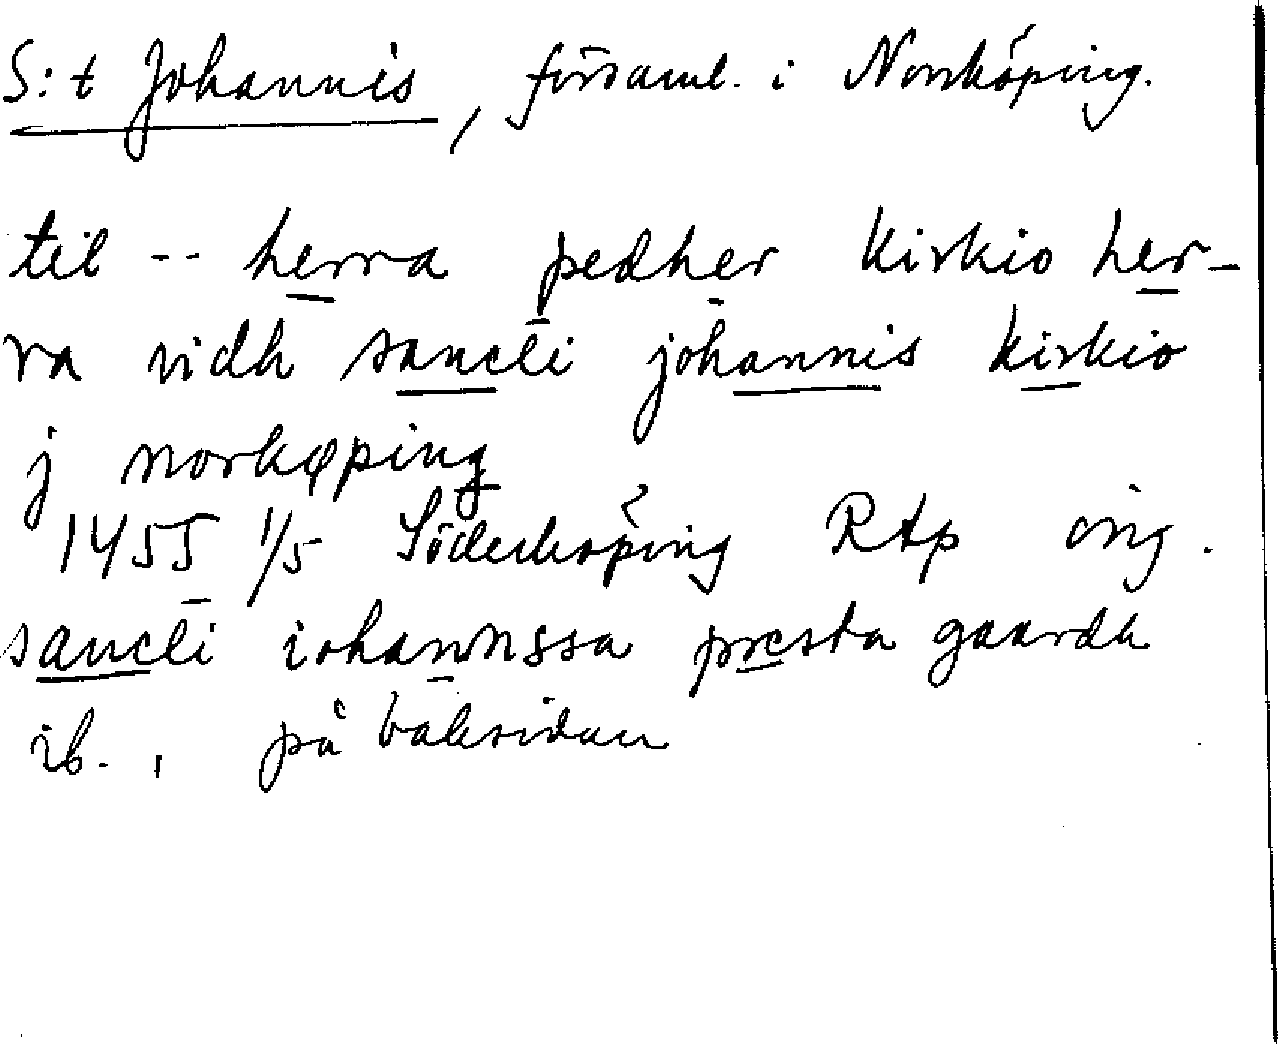 S:t Johannis, församl. i Norrköping.
til -- herra pedher kirkio her-
ra vidh sancti johannis kirkio
j norkøping
1455 1/5 Söderköping RAp orig.
sancti iohannssa presta gaardh
ib., på baksidan